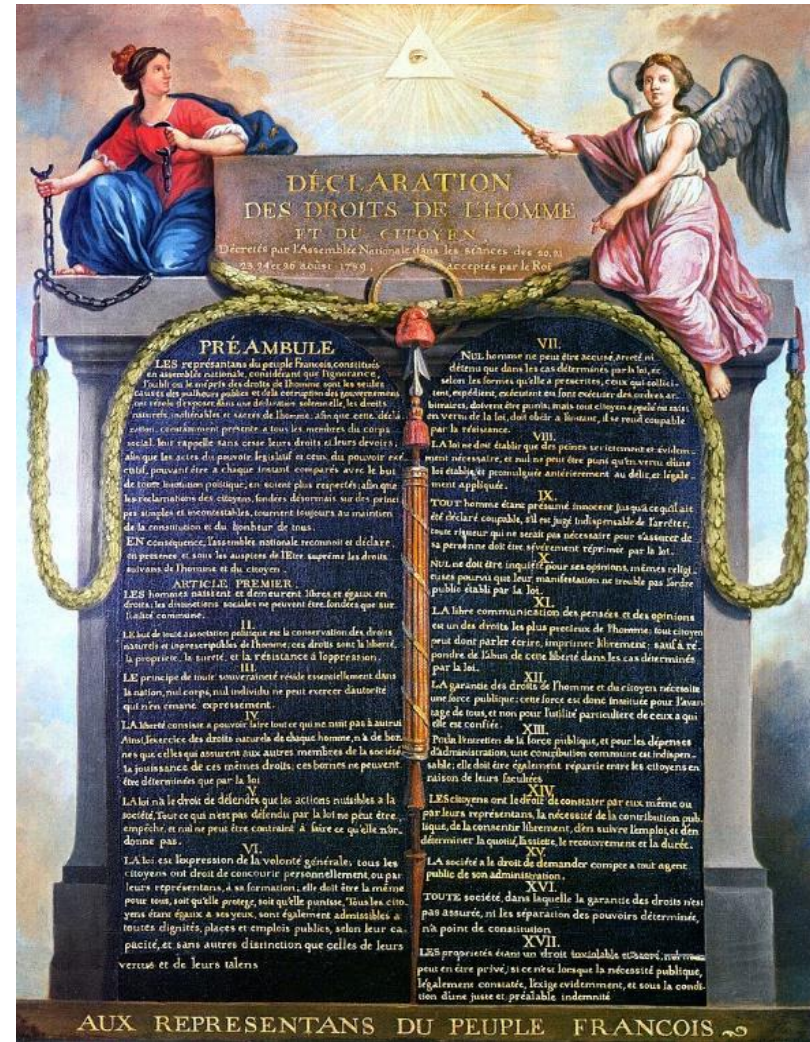 DÉCLARATION
DES DROITS DE L'HOMME
ET DU CITOYEN
Décretés par l'Assemblée Nationale dans les séances des 20, 21
23, 24 et 26 août 1789, acceptés par le Roi
PRÉAMBULE
LES représantans du peuple Francois, constitués
en assemblée nationale, considérant que l'ignorance,
l'oubli ou le mépris des droits de l'homme sont les seules
causes des malheurs publics et de la corruption des gouvernemens
ont résolu d'exposer dans une déclaration solemnelle, les droits
naturels, inaliénables et sacrés de l'homme: afin que cette décla
ration, constamment présente a tous les membres du corps
social, leur rappelle sans cesse leurs droits et leurs devoirs;
afin que les actes du pouvoir legislatif et ceux du pouvoir exé
cutif, pouvant être a chaque instant comparés avec le but
de toute institution politique, en soient plus respectés; afin que
les réclamations des citoyens, fondées désormais sur des princi
pes simples et incontestables, tournent toujours au maintien
de la constitution et du bonheur de tous.
EN conséquence, l'assemblée nationale reconnoît et déclare,
en presence et sous les auspices de l'Etre suprême les droits
suivans de l'homme et du citoyen.
ARTICLE PREMIER.
LES hommes naissent et demeurent libres et égaux en
droits; les distinctions sociales ne peuvent être fondées que sur
l'utilité commune.
II.
LE but de toute association politique est la conservation des droits
naturels et inprescriptibles de l'homme; ces droits sont la liberté,
la propriete, la sureté, et la résistance à l'oppression.
III.
LE principe de toute souveraineté réside essentiellement dans
la nation, nul corps, nul individu ne peut exercer d'autorité
qui n'en emane expressement.
IV.
LA liberté consiste a pouvoir faire tout ce qui ne nuit pas à autrui
Ainsi, l'exercice des droits naturels de chaque homme, n'a de bor
nes que celles qui assurent aux autres membres de la société
la jouissance de ces mêmes droits; ces bornes ne peuvent
être déterminées que par la loi
V.
LA loi n'a le droit de défendre que les actions nuisibles a la
société, Tout ce qui n'est pas défendu par la loi ne peut être
empêché, et nul ne peut être contraint à faire ce qu'elle n'or-
donne pas.
VI.
LA loi est l'expression de la volonté générale; tous les
citoyens ont droit de concourir personnellement, ou par
leurs représentans, à sa formation; elle doit être la même
pour tous, soit qu'elle protege, soit qu'elle punisse, Tous les cito
yens étant égaux a ses yeux, sont également admissibles a
toutes dignités, places et emplois publics, selon leur ca
pacité, et sans autres distinction que celles de leurs
vertus et de leurs talens
VII.
NUL homme ne peut être accusé, arreté ni
détenu que dans les cas déterminés par la loi, et
selon les formes qu'elle a prescrites, ceux qui sollici-
tent, expédient, exécutent ou font exécuter des ordres ar-
bitraires, doivent être punis; mais tout citoyen appelé ou saisi
en vertu de la loi, doit obéir a l'instant, il se rend coupable
par la résistance.
VIII.
LA loi ne doit établir que des peines strictement et évidem-
ment nécessaire, et nul ne peut être puni qu'en vertu d'une
loi établie et promulguée antérierement au délit, et légale-
ment appliquée.
IX.
TOUT homme étant présumé innocent jusqu'a ce qu'il ait
été déclaré coupable, s'il est jugé indispensable de l'arrêter,
toute rigueur qui ne serait pas nécessaire pour s'assurer de
sa personne doit être sévèrement réprimée par la loi.
X.
NUL ne doit être inquiété pour ses opinions, mêmes religi-
euses pourvu que leur manifestation ne trouble pas l'ordre
public établi par la loi.
XI.
LA libre communication des pensées et des opinions
est un des droits les plus precieux de l'homme; tout citoyen
peut dont parler écrire, imprimer librement; sauf à ré
pondre de l'abus de cette liberté dans les cas déterminés
par la loi.
XII.
LA garantie des droits de l'homme et du citoyen nécessite
une force publique; cette force est donc instituée pour l'avan
tage de tous, et non pour l'utilité particuliere de ceux a qui
elle est confiée.
XIII.
Pour l'entretien de la force publique, et pour les dépenses
d'administration, une contribution commune est indispen-
sable; elle doit être également répartie entre les citoyens en
raison de leurs facultées
XIV.
LES citoyens ont le droit de constater par eux même ou
par leurs représentans, la nécessité de la contribution pub-
lique, de la consentir librement, d'en suivre l'emploi, et d'en
déterminer la quotité, l'assiette, le recouvrement et la durée.
XV.
LA société a le droit de demander compte a tout agent
public de son administration.
XVI.
TOUTE société, dans laquelle la garantie des droits n'est
pas assurée, ni les séparation des pouvoirs déterminée,
n'a point de constitution
XVII.
LES proprietés étant un droit inviolable et sacré, nul ne
peut en être privé, si ce n'est lorsque la nécessité publique,
légalement constatée, l'exige evidemment, et sous la condi-
tion d'une juste et préalable indemnité
AUX REPRESENTANS DU PEUPLE FRANCOIS